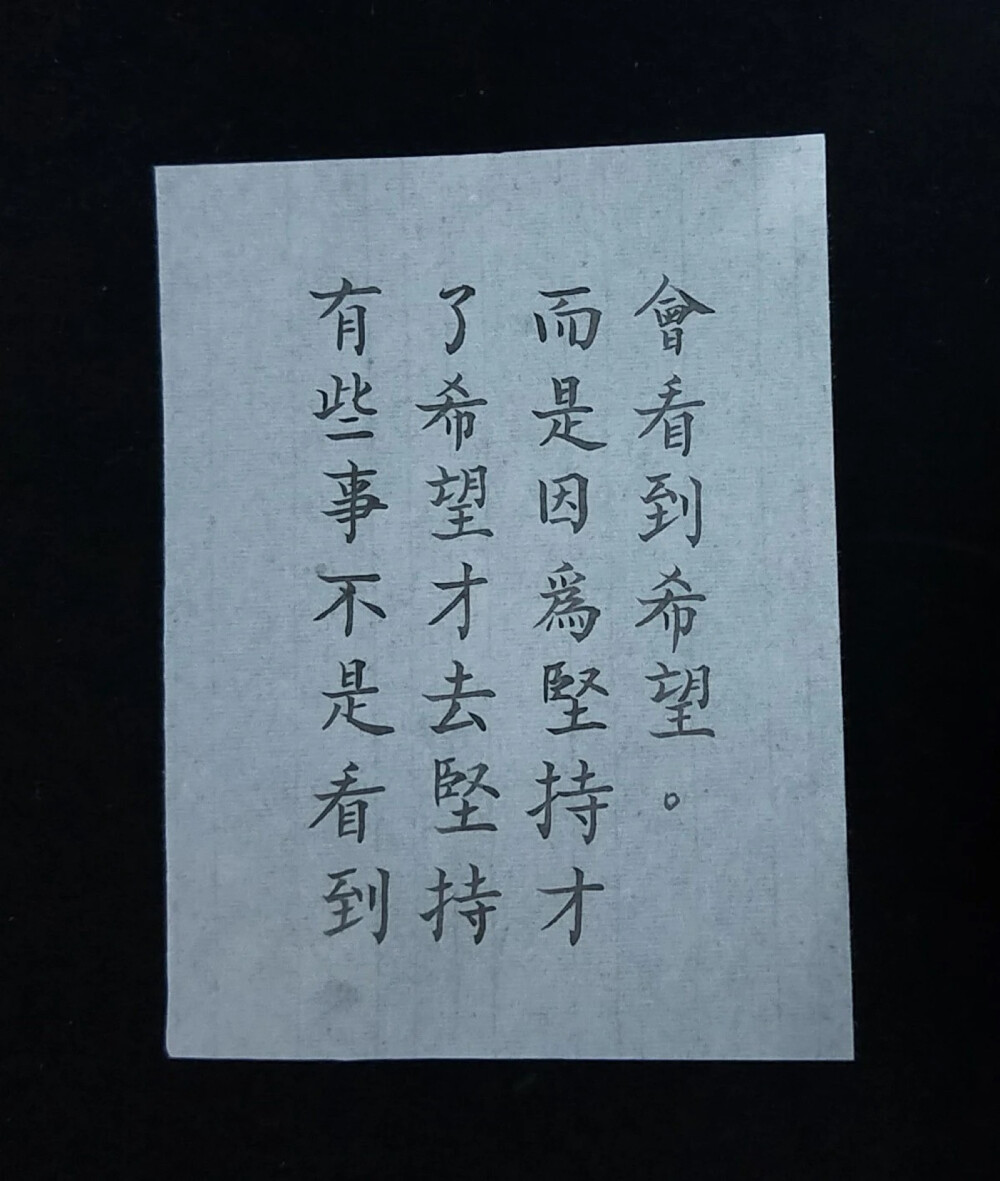 有些事不是看到
了希望才去堅持
而是因爲堅持才
會看到希望。